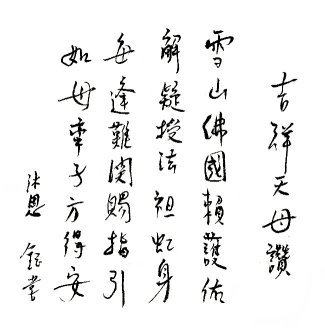 吉祥天母讚
雪山佛國賴護佑
解疑授法祖虹身
每逢難關賜指引
如母牽子方得安
沐恩 鈺書